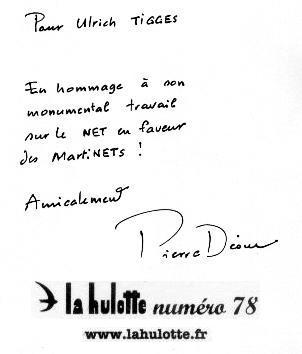 Pour Ulrich TIGGES
En hommage à son
monumental travail
sur le NET en faveur
des MartiNETs !
Amicalement
Pierre Déom
la hulotte numéro 78
www.lahulotte.fr